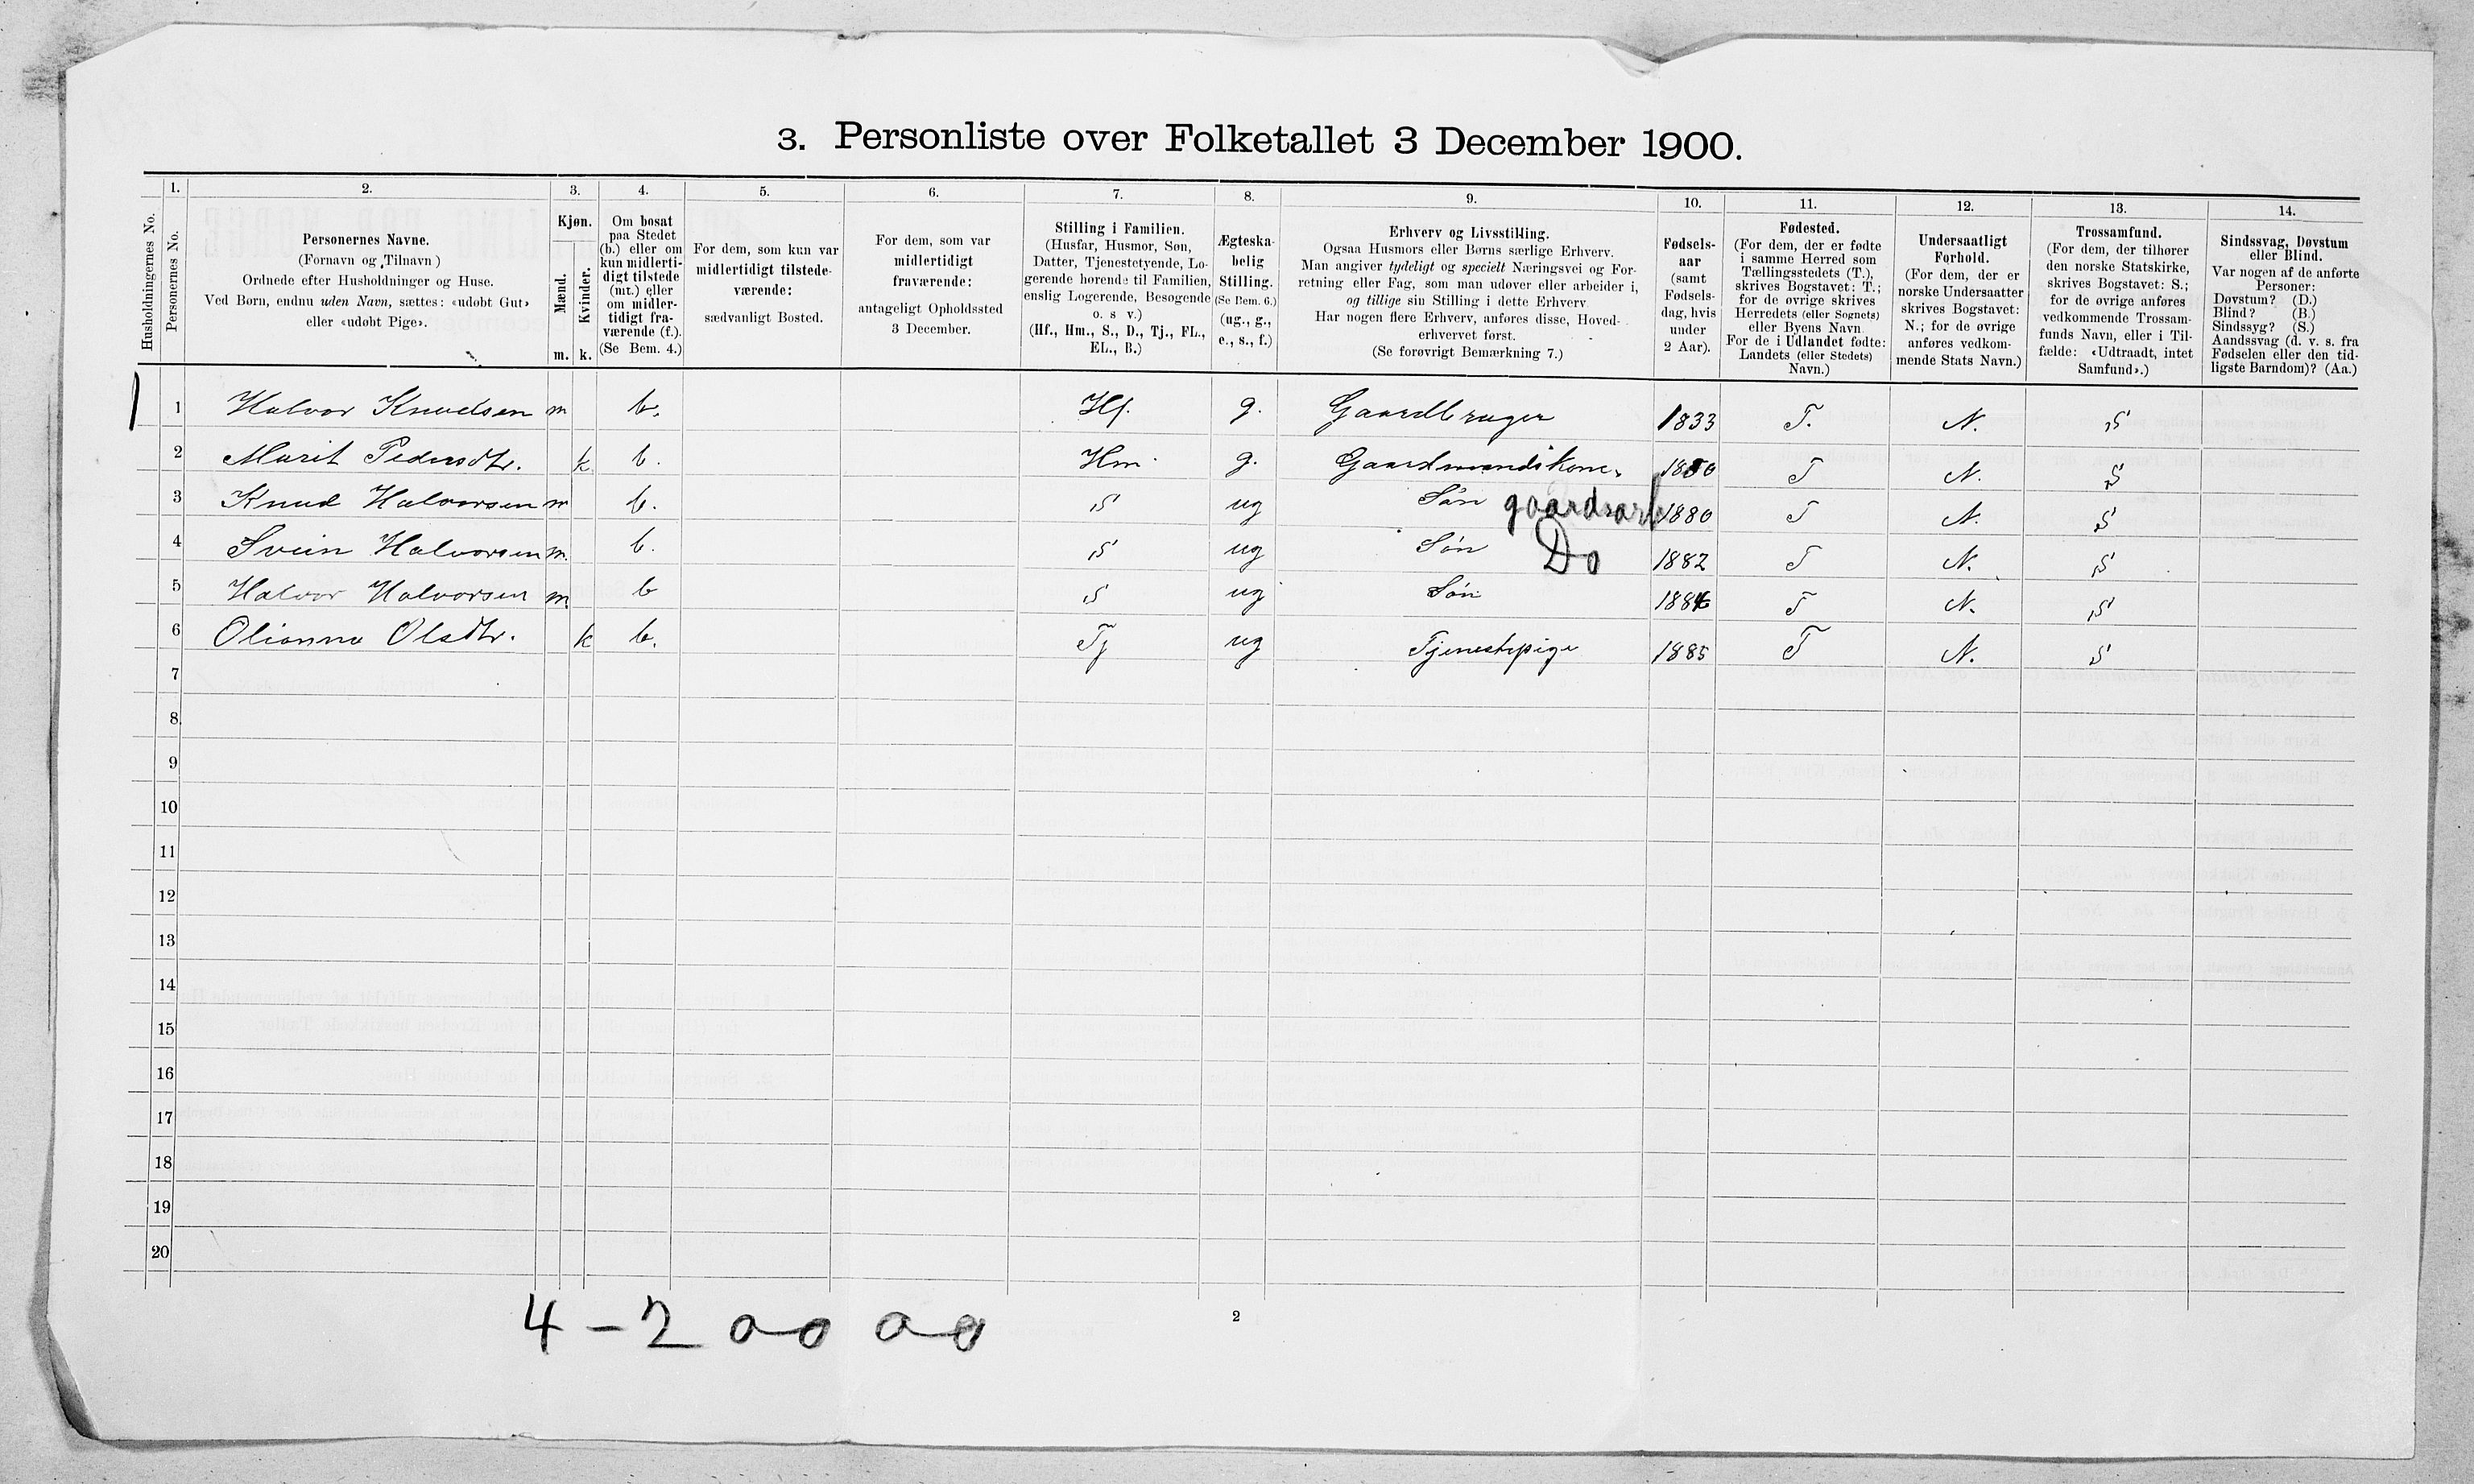 3. Personliste over Folketallet 3 December 1900.
Husholdningernes No.
1. Personernes No.
2.
Personernes Navne.
(Fornavn og Tilnavn)
Ordnede efter Husholdninger og Huse.
Ved Børn, endnu uden Navn, sættes: «udøbt Gut»
eller «udøbt Pige».
3.
Kjøn.
Mænd.
Kvinder.
m. k.
4.
Om bosat
paa Stedet
(b.) eller om
kun midlerti-
digt tilstede
(mt.) eller
om midler-
tidigt fra-
værende (f.).
(Se Bem. 4.)
5.
For dem, som kun var
midlertidigt tilstede-
værende:
sædvanligt Bosted.
6.
For dem, som var
midlertidigt
fraværende:
antageligt Opholdssted
3 December.
7.
Stilling i Familien.
(Husfar, Husmor, Søn,
Datter, Tjenestetyende, Lo-
gerende hørende til Familien,
enslig Logerende, Besøgende
o. s v.)
(Hf., Hm., S., D., Tj., FL.,
EL., B.)
8.
Ægteska-
belig
Stilling.
(Se Bem. 6.)
(ug., g.,
e., s., f.)
9.
Erhverv og Livsstilling.
Ogsaa Husmors eller Børns særlige Erhverv.
Man angiver tydeligt og specielt Næringsvei og For-
retning eller Fag, som man udøver eller arbeider i,
og tillige sin Stilling i dette Erhverv.
Har nogen flere Erhverv, anføres disse, Hoved-
erhvervet først.
(Se forøvrigt Bemærkning 7.)
10.
Fødsels-
aar
(samt
Fødsels-
dag, hvis
under
2 Aar).
11.
Fødested.
(For dem, der er fødte
i samme Herred som
Tællingsstedets (T.),
skrives Bogstavet: T.;
for de øvrige skrives
Herredets (eller Sognets)
eller Byens Navn.
For de i Udlandet fødte:
Landets (eller Stedets)
Navn.)
12.
Undersaatligt
Forhold.
(For dem, der er
norske Undersaatter
skrives Bogstavet:
N.; for de øvrige
anføres vedkom-
mende Stats Navn.)
13.
Trossamfund.
(For dem, der tilhører
den norske Statskirke,
skrives Bogstavet: S.;
for de øvrige anføres
vedkommende Trossam-
funds Navn, eller i Til-
fælde: «Udtraadt, intet
Samfund».)
14.
Sindssvag, Døvstum
eller Blind.
Var nogen af de anførte
Personer:
Døvstum? (D.)
Blind? (B.)
Sindssyg? (S.)
Aandssvag (d. v. s. fra
Fødselen eller den tid-
ligste Barndom)? (Aa.)
1 1 Halvor Knudsen m b. Hf. g. Gaardbruger 1833 T. N. S
2 Marit Pedersdtr. k b. Hm. g. Gaardmandskone. 1850 T N. S
3 Knud Halvorsen m b. S ug Søn gaardsarb 1880 T N. S
4 Svein Halvorsen m. b. S ug Søn Do 1882 T N. S
5 Halvor Halvorsen m b S ug Søn 1884 T N. S
6 Olianna Olsdtr. k b. Tj ug Tjenestepige 1885 T N. S
7
8
9
10
11
12
13
14
15
16
17
18
19
20
4 - 2 0-0 0-0
2